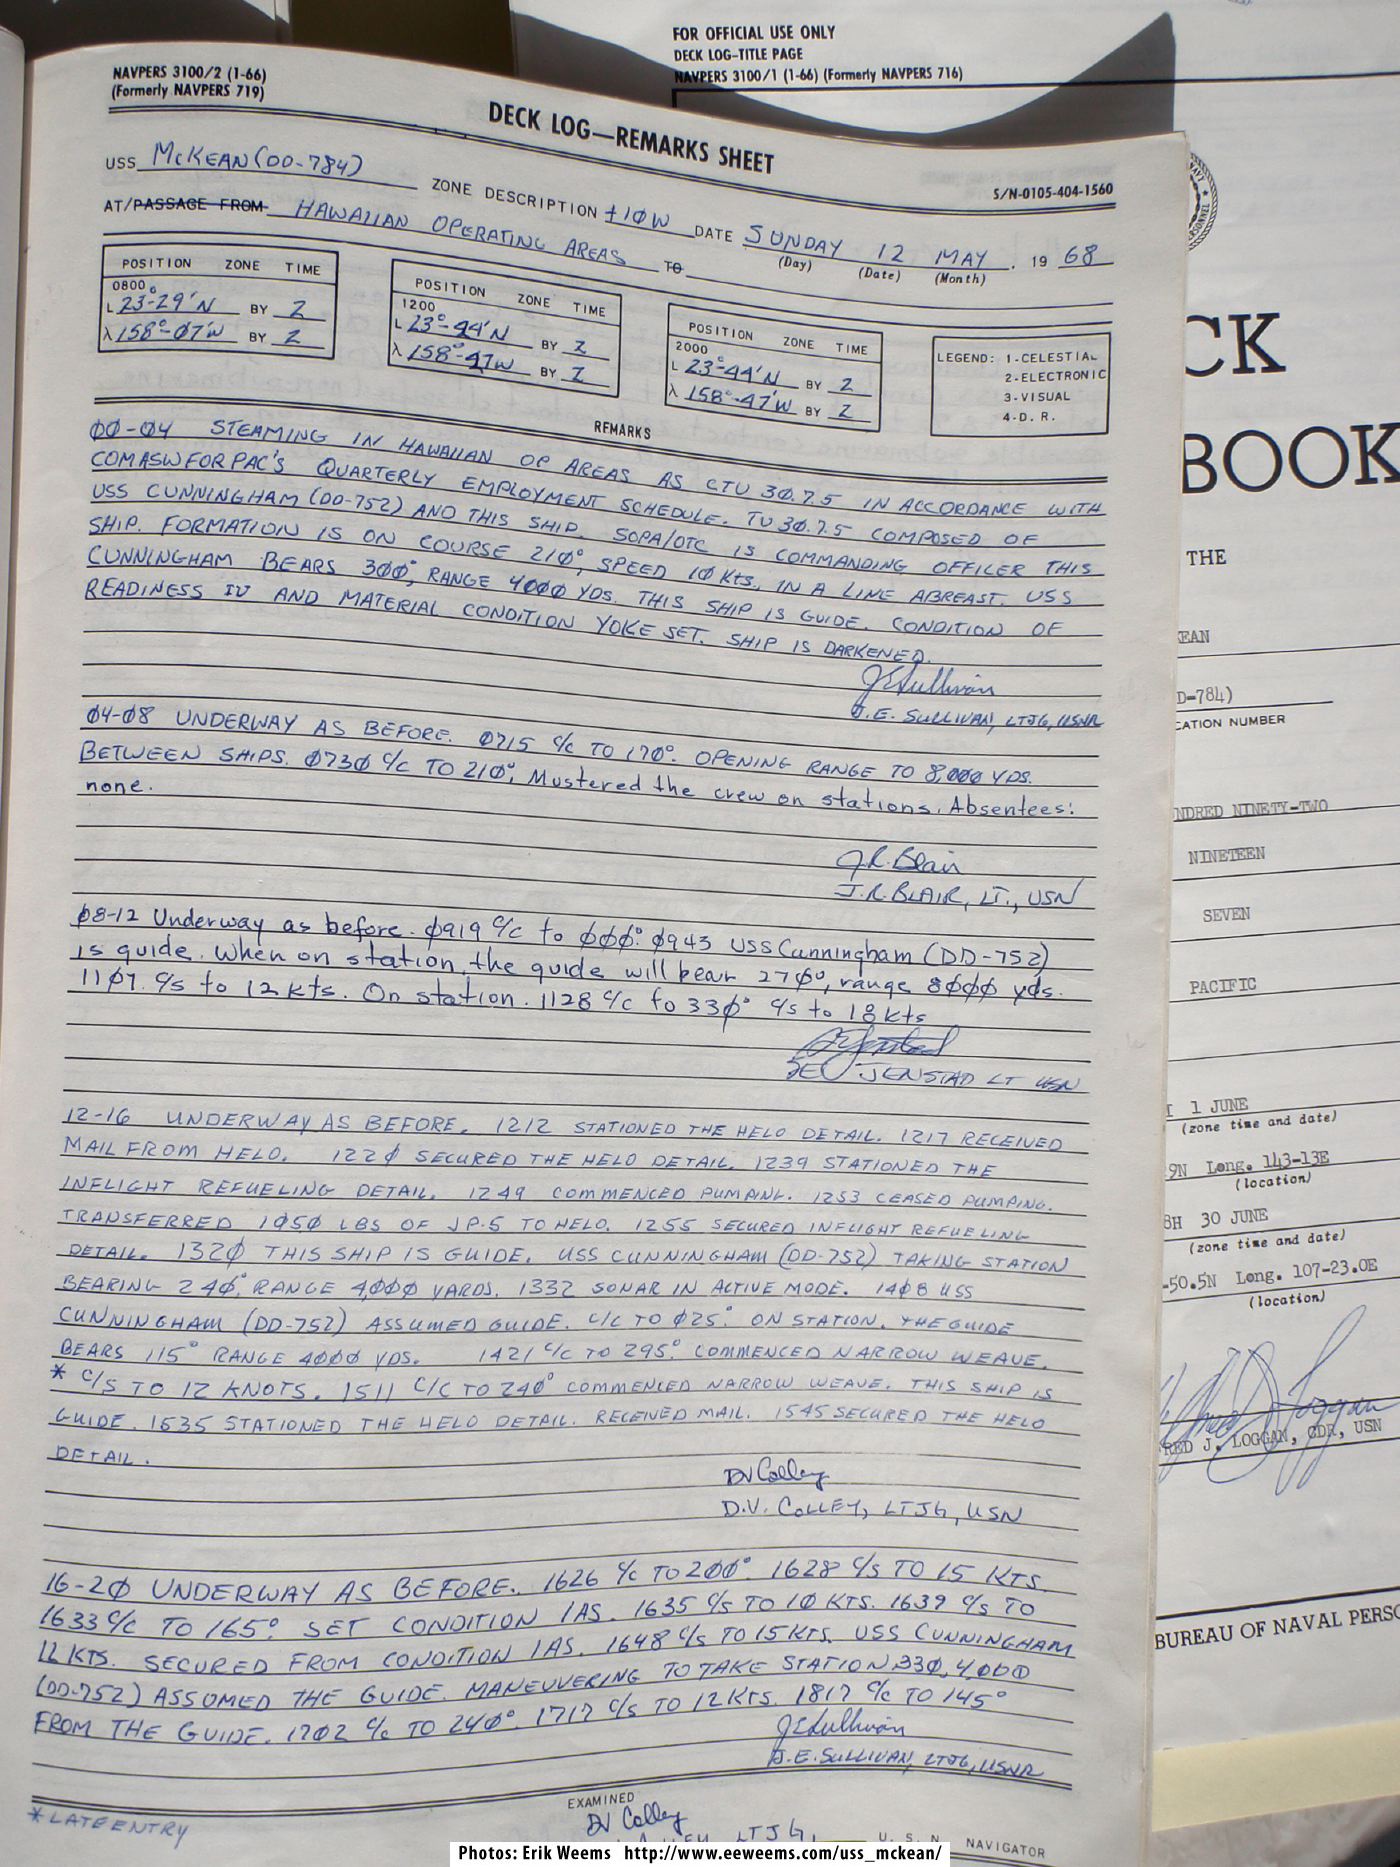 FOR OFFICIAL USE ONLY
DECK LOG-TITLE PAGE
NAVPERS 3100/1 (1-66) (Formerly NAVPERS 716)
NAVPERS 3100/2 (1-66)
(Formerly NAVPERS 719)
DECK LOG—REMARKS SHEET
S/N-0105-404-1560
USS McKEAN (DD-784) ZONE DESCRIPTION +10W DATE SUNDAY 12 MAY . 19 68
(Day) (Date) (Month)
AT/PASSAGE FROM HAWAIIAN OPERATING AREAS TO
POSITION ZONE TIME
0800
L 23-29'N BY 2
λ 158°-07'W BY 2
POSITION ZONE TIME
1200
L 23°-44'N BY 2
λ 158°-47'W BY 2
POSITION ZONE TIME
2000
L 23°-44'N BY 2
λ 158°-47'W BY 2
LEGEND: 1-CELESTIAL
2-ELECTRONIC
3-VISUAL
4-D. R.
REMARKS
00-04 STEAMING IN HAWAIIAN OP AREAS AS CTU 30.7.5 IN ACCORDANCE WITH
COMASWFORPAC'S QUARTERLY EMPLOYMENT SCHEDULE. TU 30.7.5 COMPOSED OF
USS CUNNINGHAM (DD-752) AND THIS SHIP. SOPA/OTC IS COMMANDING OFFICER THIS
SHIP. FORMATION IS ON COURSE 210°, SPEED 10 KTS., IN A LINE ABREAST. USS
CUNNINGHAM BEARS 300°, RANGE 4000 YDS. THIS SHIP IS GUIDE. CONDITION OF
READINESS IV AND MATERIAL CONDITION YOKE SET. SHIP IS DARKENED.
JE Sullivan
J.E. SULLIVAN, LTJG, USNR
04-08 UNDERWAY AS BEFORE. 0715 C/C TO 170°. OPENING RANGE TO 8,000 YDS.
BETWEEN SHIPS. 0730 C/C TO 210°. Mustered the crew on stations. Absentees:
none.
J.R. Blair
J.R. BLAIR, LT., USN
08-12 Underway as before. 0919 C/C to 000°. 0943 USS Cunningham (DD-752)
is guide. When on station, the guide will bear 270°, range 8000 yds.
1107. C/S to 12 kts. On station. 1128 C/C to 330° C/S to 18 kts
JENSTAD LT USN
12-16 UNDERWAY AS BEFORE. 1212 STATIONED THE HELO DETAIL. 1217 RECEIVED
MAIL FROM HELO. 1220 SECURED THE HELO DETAIL. 1239 STATIONED THE
INFLIGHT REFUELING DETAIL. 1249 COMMENCED PUMPING. 1253 CEASED PUMPING.
TRANSFERRED 1050 LBS OF JP-5 TO HELO. 1255 SECURED INFLIGHT REFUELING
DETAIL. 1320 THIS SHIP IS GUIDE. USS CUNNINGHAM (DD-752) TAKING STATION
BEARING 240°, RANGE 4,000 YARDS. 1332 SONAR IN ACTIVE MODE. 1408 USS
CUNNINGHAM (DD-752) ASSUMED GUIDE. C/C TO 025°. ON STATION. THE GUIDE
BEARS 115° RANGE 4000 YDS. 1421 C/C TO 295°. COMMENCED NARROW WEAVE.
* C/S TO 12 KNOTS. 1511 C/C TO 240° COMMENCED NARROW WEAVE. THIS SHIP IS
GUIDE. 1535 STATIONED THE HELO DETAIL. RECEIVED MAIL. 1545 SECURED THE HELO
DETAIL.
DV Colley
D.V. COLLEY, LTJG, USN
16-20 UNDERWAY AS BEFORE. 1626 C/C TO 200°. 1628 C/S TO 15 KTS.
1633 C/C TO 165°. SET CONDITION 1AS. 1635 C/S TO 10 KTS. 1639 C/S TO
12 KTS. SECURED FROM CONDITION 1AS. 1648 C/S TO 15 KTS. USS CUNNINGHAM
(DD-752) ASSUMED THE GUIDE. MANEUVERING TO TAKE STATION 330, 4,000
FROM THE GUIDE. 1702 C/C TO 240°. 1717 C/S TO 12 KTS. 1817 C/C TO 145°
JE Sullivan
J.E. SULLIVAN, LTJG, USNR
EXAMINED
DV Colley
LTJG, U. S. N. NAVIGATOR
* LATE ENTRY
CK
BOOK
THE
EAN
D-784)
CATION NUMBER
NDRED NINETY-TWO
NINETEEN
SEVEN
PACIFIC
1 JUNE
(zone time and date)
9N Long. 143-13E
(location)
8H 30 JUNE
(zone time and date)
-50.5N Long. 107-23.0E
(location)
RED J. LOGGAN, CDR, USN
BUREAU OF NAVAL PERSO
Photos: Erik Weems http://www.eeweems.com/uss_mckean/